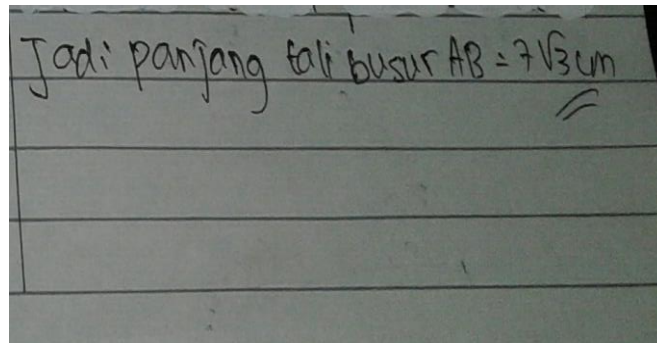 Jadi panjang tali busur AB = 7√3 cm